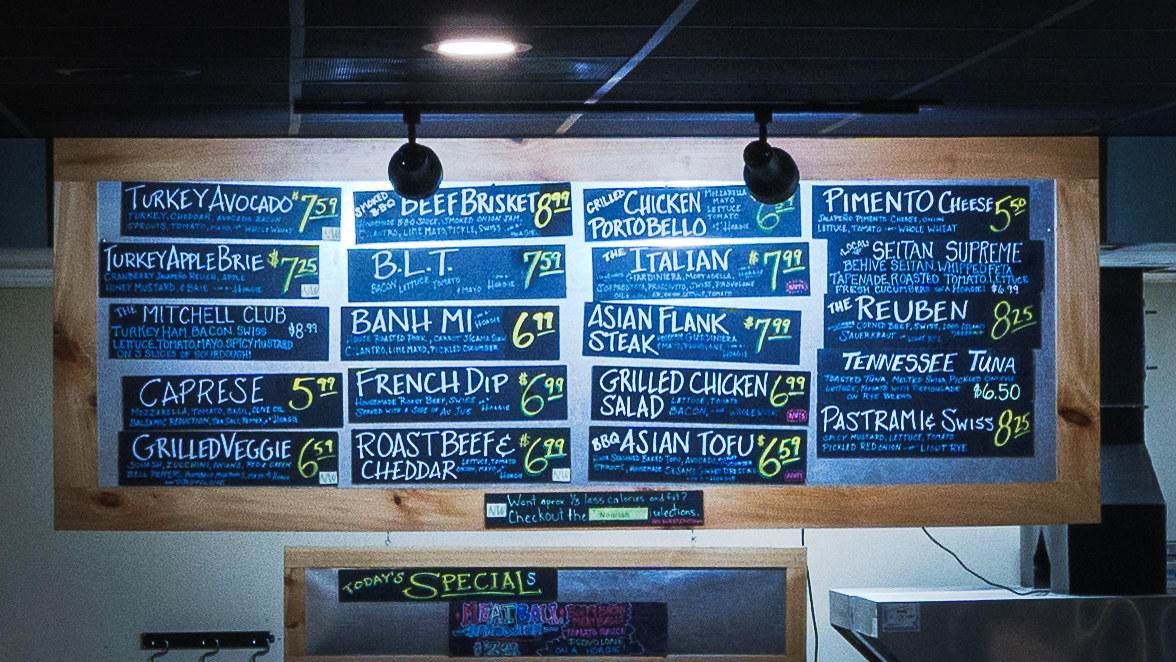 TURKEY AVOCADO $7.59
TURKEY, CHEDDAR, AVOCADO, BACON
SPROUTS, TOMATO, MAYO WHOLE WHEAT
NW
TURKEY APPLE BRIE $7.25
CRANBERRY JALAPEÑO RELISH, APPLE
HONEY MUSTARD, & BRIE HOAGIE
NW
THE MITCHELL CLUB
TURKEY, HAM, BACON, SWISS $8.99
LETTUCE, TOMATO, MAYO, SPICY MUSTARD
ON 3 SLICES OF SOURDOUGH!
CAPRESE 5.99
MOZZARELLA, TOMATO, BASIL, OLIVE OIL
BALSAMIC REDUCTION,
GRILLED VEGGIE 6.59
SQUASH, ZUCCHINI, ONIONS, RED & GREEN
BELL PEPPERS,
NW
SMOKED BBQ BEEF BRISKET 8.99
BBQ SAUCE, SMOKED ONION JAM,
CILANTRO, LIME MAYO, PICKLE, SWISS HOAGIE
B.L.T. 7.59
BACON LETTUCE TOMATO MAYO HOAGIE
BANH MI HOAGIE 6.99
HOUSE ROASTED PORK, CARROT JICAMA SLAW
CILANTRO, LIME MAYO, PICKLED CUCUMBER
FRENCH DIP $6.99
HOMEMADE ROAST BEEF, SWISS
SERVED WITH A SIDE OF AU JUS HOAGIE
ROAST BEEF & $6.99
CHEDDAR LETTUCE, TOMATO
ONION, MAYO HOAGIE
NW
GRILLED CHICKEN
PORTOBELLO
MOZZARELLA
MAYO
LETTUCE
TOMATO
THE ITALIAN $7.99
GIARDINIERA, MORTADELLA,
SOPRESSATA, PROSCIUTTO, SWISS, PROVOLONE
ONION, LETTUCE, TOMATO
ASIAN FLANK $7.99
STEAK GIARDINIERA
HOAGIE
GRILLED CHICKEN 6.99
SALAD LETTUCE, TOMATO
BACON, WHOLE WHEAT
NUTS
BBQ ASIAN TOFU $6.59
BAKED TOFU, AVOCADO
SPROUTS, HOMEMADE SESAME GINGER DRESSING
NUTS
PIMENTO CHEESE 5.50
JALAPEÑO PIMENTO CHEESE, ONION
LETTUCE, TOMATO WHOLE WHEAT
LOCAL SEITAN SUPREME
BEHIVE SEITAN, WHIPPED FETA
TAPENADE, ROASTED TOMATO, LETTUCE
FRESH CUCUMBERS HOAGIE $6.99
THE REUBEN 8.25
CORNED BEEF, SWISS, 1000 ISLAND
SAUERKRAUT
TENNESSEE TUNA
TOASTED TUNA, MELTED SWISS, PICKLED
LETTUCE, TOMATO WITH REMOULADE
ON RYE BREAD $6.50
PASTRAMI & SWISS 8.25
SPICY MUSTARD, LETTUCE, TOMATO
PICKLED RED ONION LIGHT RYE
NW Want aprox 1/3 less calories and fat?
Checkout the Nourish selections.
TODAY'S SPECIALS
MEATBALL
MEATBALLS
TOMATO SAUCE
PROVOLONE
ON A HOAGIE